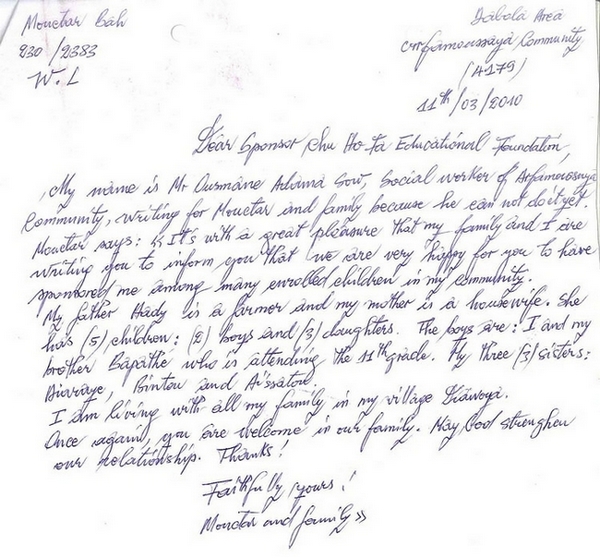 Mouctar Bah
230/2383
W.L
Dabola Area
Arfamoussaya Community
(4179)
11th/03/2010
Dear Sponsor Chu Ho-Fa Educational Foundation,
My name is Mr Ousmane Adama Sow, Social worker of Arfamoussaya
Community, writing for Mouctar and family because he can not do it yet.
Mouctar says: << It's with a great pleasure that my family and I are
writing you to inform you that we are very happy for you to have
sponsored me among many enrolled children in my community.
My father Hady is a farmer and my mother is a housewife. She
has (5) children: (2) boys and (3) daughters. The boys are: I and my
brother Bapathé who is attending the 11th grade. My three (3) sisters:
Diaraye, Bintou and Aïssatou.
I am living with all my family in my village
Once again, you are welcome in our family. May God strengthen
our relationship. Thanks!
Faithfully yours!
Mouctar and family >>